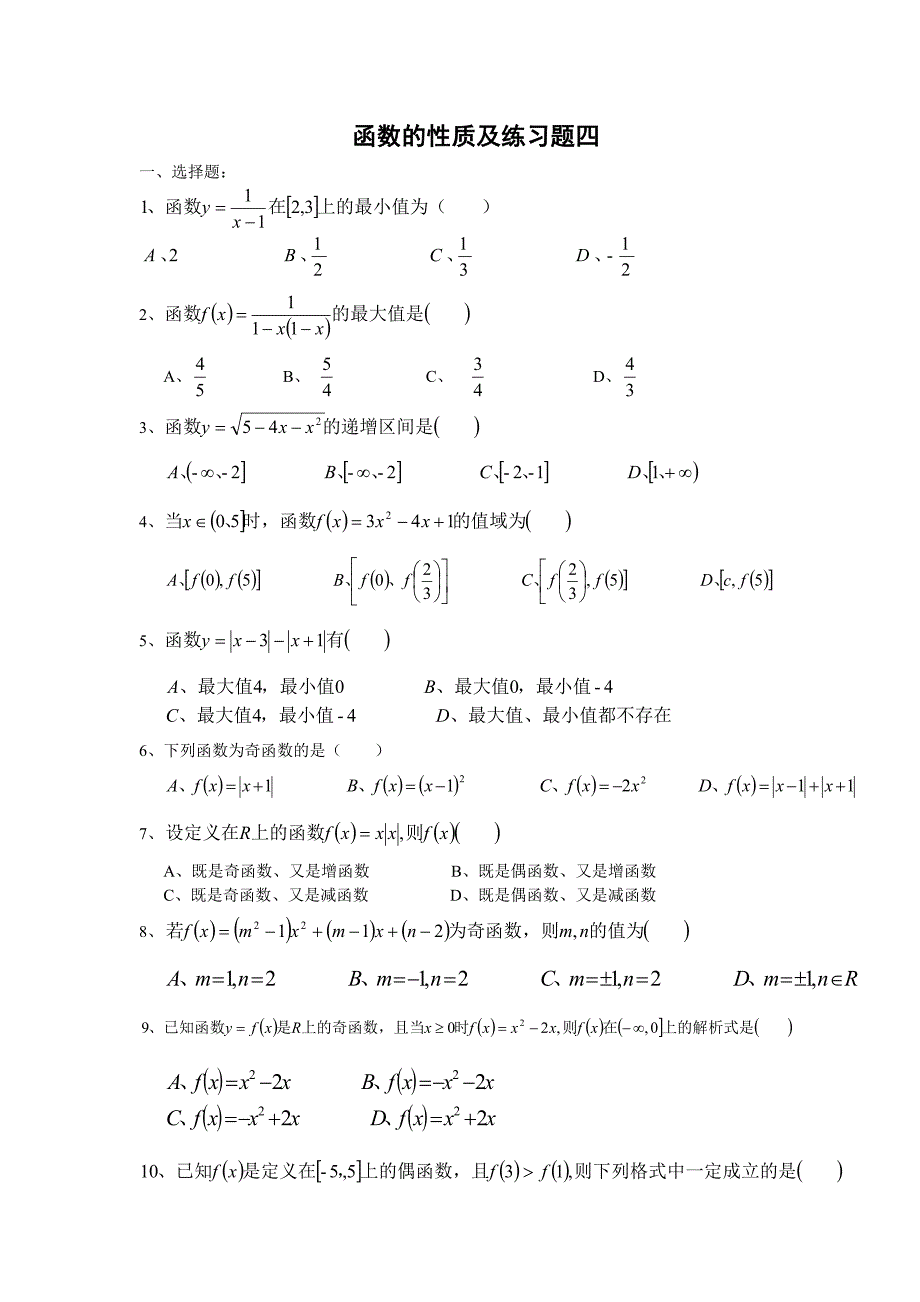 函数的性质及练习题四
一、选择题：
1、函数y=\frac{1}{x-1}在[2,3]上的最小值为（　　）
A、2　　B、\frac{1}{2}　　C、\frac{1}{3}　　D、-\frac{1}{2}
2、函数f(x)=\frac{1}{1-x(1-x)}的最大值是(　　)
A、\frac{4}{5}　　B、\frac{5}{4}　　C、\frac{3}{4}　　D、\frac{4}{3}
3、函数y=\sqrt{5-4x-x^2}的递增区间是(　　)
A、(-∞、-2]　　B、[-∞、-2]　　C、[-2、-1]　　D、[1、+∞)
4、当x∈(0、5]时，函数f(x)=3x^2-4x+1的值域为(　　)
A、[f(0),f(5)]　　B、[f(0)、f(\frac{2}{3})]　　C、[f(\frac{2}{3}),f(5)]　　D、[c,f(5)]
5、函数y=|x-3|-|x+1|有(　　)
A、最大值4，最小值0　　B、最大值0，最小值-4
C、最大值4，最小值-4　　D、最大值、最小值都不存在
6、下列函数为奇函数的是（　　）
A、f(x)=|x+1|　　B、f(x)=(x-1)^2　　C、f(x)=-2x^2　　D、f(x)=|x-1|+|x+1|
7、设定义在R上的函数f(x)=x|x|,则f(x)(　　)
A、既是奇函数、又是增函数　　B、既是偶函数、又是增函数
C、既是奇函数、又是减函数　　D、既是偶函数、又是减函数
8、若f(x)=(m^2-1)x^2+(m-1)x+(n-2)为奇函数，则m,n的值为(　　)
A、m=1,n=2　　B、m=-1,n=2　　C、m=±1,n=2　　D、m=±1,n∈R
9、已知函数y=f(x)是R上的奇函数，且当x≥0时f(x)=x^2-2x,则f(x)在(-∞,0]上的解析式是(　　)
A、f(x)=x^2-2x　　B、f(x)=-x^2-2x
C、f(x)=-x^2+2x　　D、f(x)=x^2+2x
10、已知f(x)是定义在[-5,,5]上的偶函数，且f(3)>f(1),则下列格式中一定成立的是(　　)